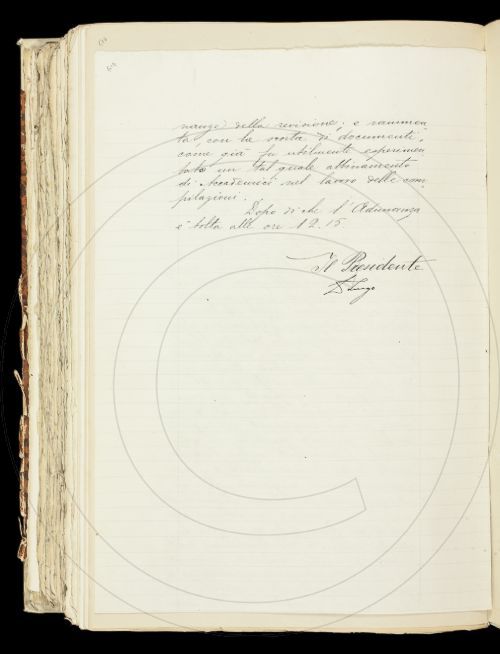 nanze della revisione; e rammen-
ta, con la scorta di documenti,
come già fu utilmente esperimen-
tato un tal quale abbinamento
di Accademici nel lavoro delle com-
pilazioni.
Dopo di che l'Adunanza
è tolta alle ore 12.15
Il Presidente